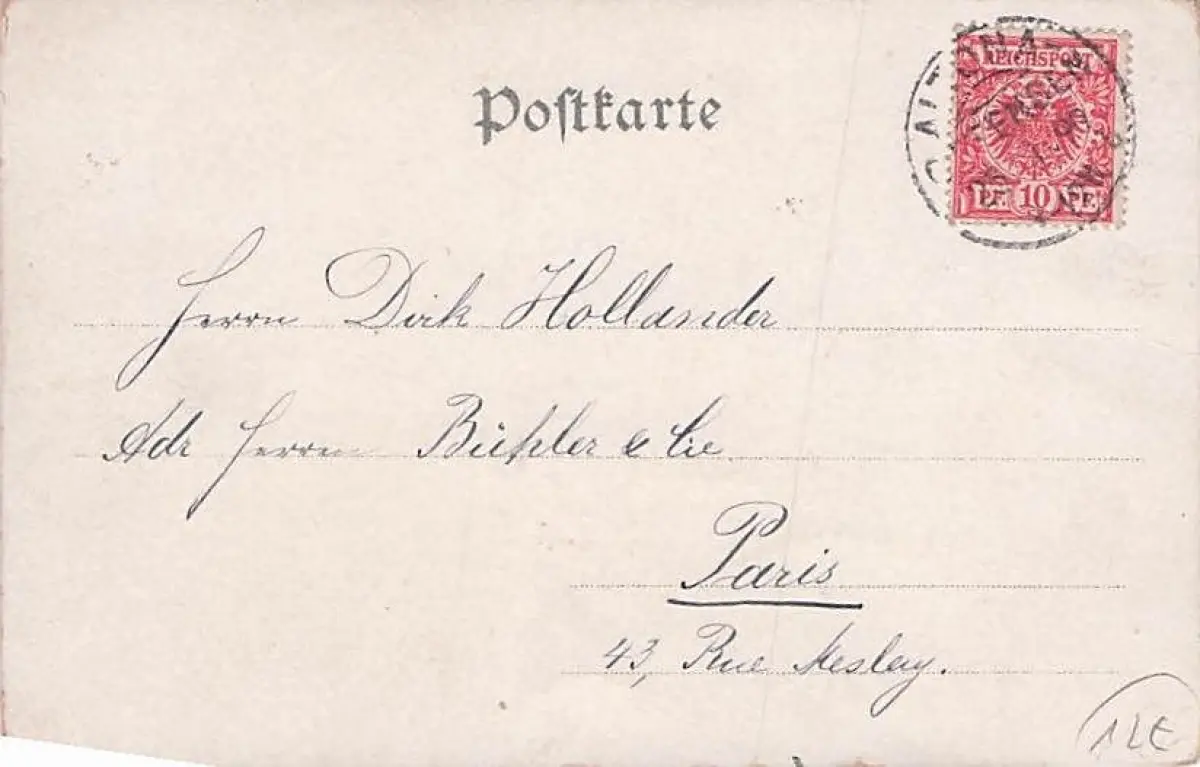 Postkarte
REICHSPOST
PF. 10 PF.
ALTONA
Herrn Dirk Hollander
Adr Herrn Bühler & Cie
Paris
43, Rue Meslay.
12€